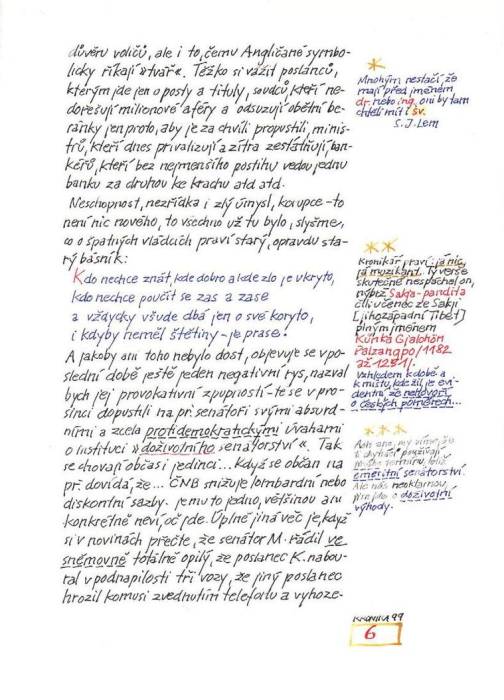 důvěru voličů, ale i to, čemu Angličané symbo-
licky říkají »tvář«. Těžko si vážit poslanců,
kterým jde jen o posty a tituly, soudců, kteří ne-
dořešují milionové aféry a odsuzují obětní be-
ránky jen proto, aby je za chvíli propustili, minis-
trů, kteří dnes privatizují a zítra zestátňují, ban-
kéřů, kteří bez nejmenšího postihu vedou jednu
banku za druhou ke krachu atd atd.
Neschopnost, nezřídka i zlý úmysl, korupce - to
není nic nového, to všechno už tu bylo, slyšme,
co o špatných vládcích praví starý, opravdu sta-
rý básník:
Kdo nechce znát, kde dobro a kde zlo je ukryto,
kdo nechce poučit se zas a zase
a vždycky všude dbá jen o své koryto,
i kdyby neměl štětiny - je prase!
A jakoby ani toho nebylo dost, objevuje se v po-
slední době ještě jeden negativní rys, nazval
bych jej provokativní zpupností - te se v pro-
sinci dopustili na př. senátoři svými absurd-
ními a zcela protidemokratickými úvahami
o instituci »doživotního senátorství«. Tak
se chovají občas i jedinci... Když se občan na
př. dovídá, že... ČNB snižuje lombardní nebo
diskontní sazby. je mu to jedno, většinou ani
konkretně neví, oč jde. Úplně jiná věc je, když
si v novinách přečte, že senátor M. řádil ve
sněmovně totálně opilý, že poslanec K. nabou-
ral v podnapilosti tři vozy, že jiný poslanec
hrozil komusi zvednutím telefonu a vyhoze-
*
Mnohým nestačí, že
mají před jménem
dr. nebo ing., oni by tam
chtěli mít i sv.
S. J. Lem
**
Kronikář praví: já nic,
já muzikant. Ty verše
skutečně nespáchal on,
nýbrž Sakja-pandita
čili učenec ze Sakji
[jihozápadní Tibet]
plným jménem
Kuňka Gjalchän
Palzangpo/1182
až 1251/.
Vzhledem k době a
k místu, kde žil, je evi-
dentní, že nehovoří
o českých poměrech...
***
Ach ano, my víme, že
ti chytřejší používají
termínu
emeritní senátorství
Ale nás neoklamou,
jim jde o doživotní
výhody.
KRONIKA 99
6